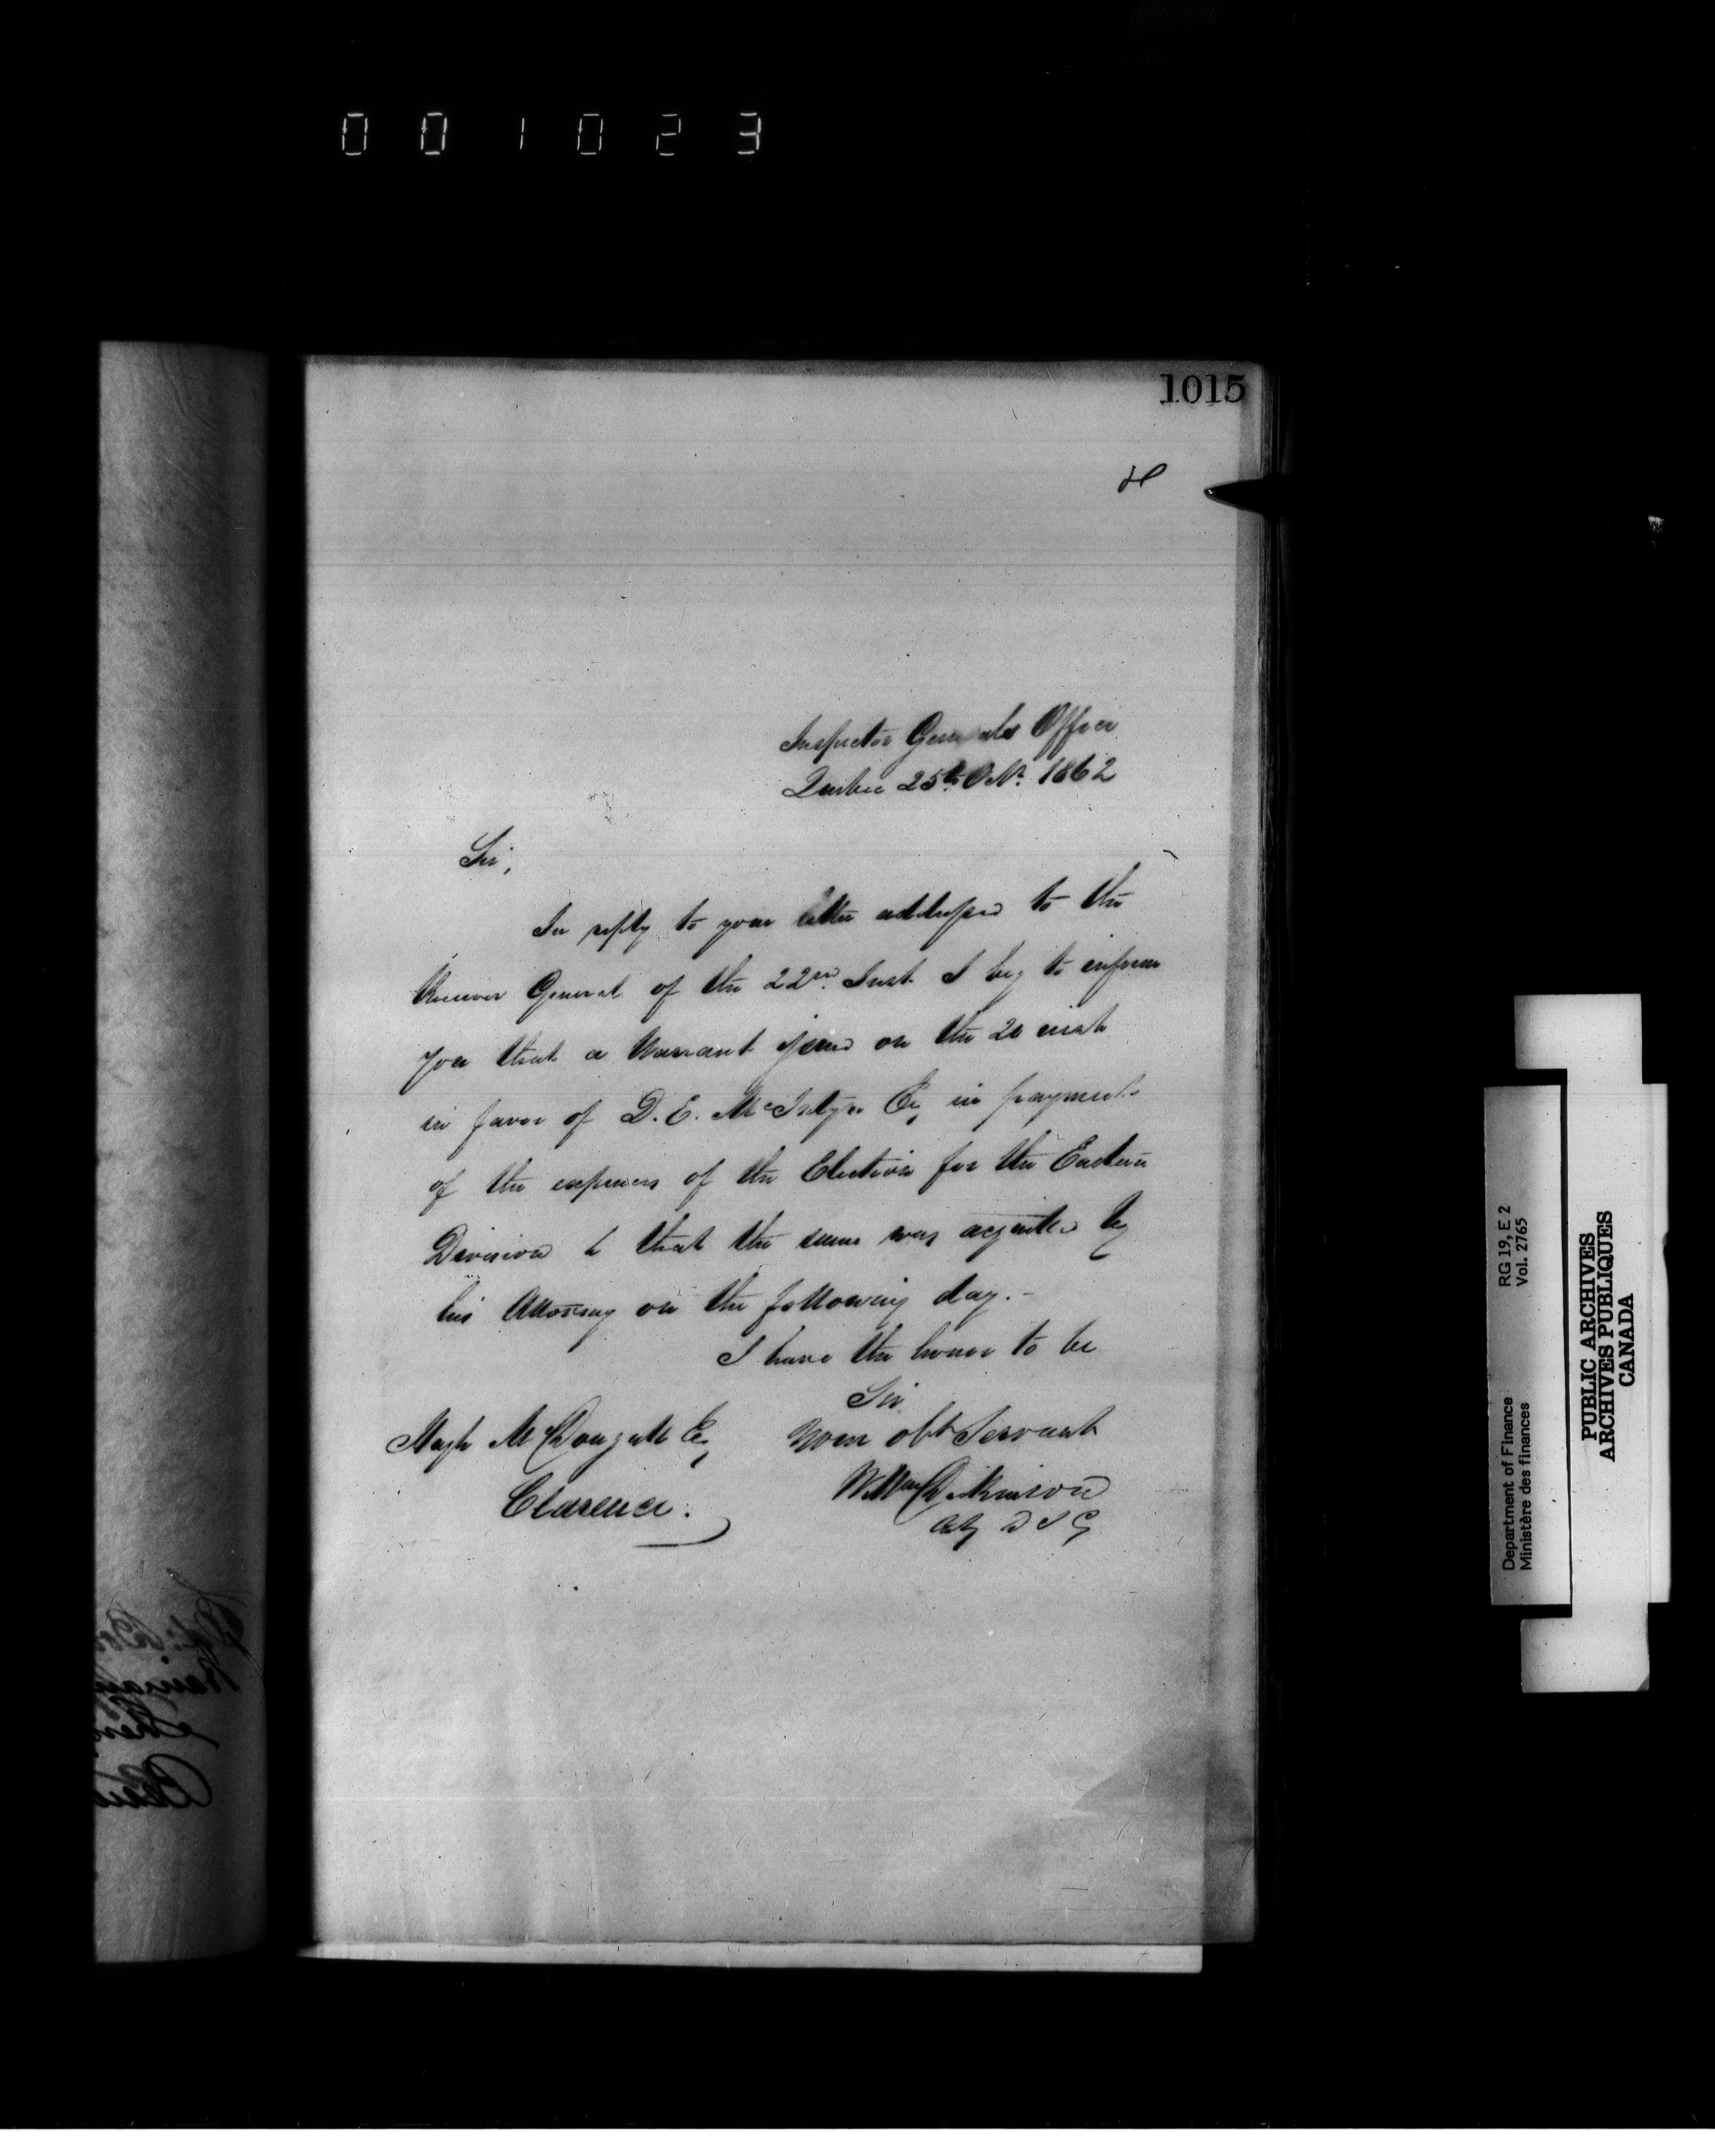 001023
1015
Inspector Generals Office
Quebec 25th Octr. 1862
Sir,
In reply to your letter addressed to the
Receiver General of the 22nd Inst I beg to inform
you that a Warrant issued on the 20 inst
in favor of D. E. McIntyre Esq in payment
of the expenses of the Election for the Eastern
Division & that the same was acquitted by
his Attorney on the following day. -
I have the honor to be
Sir
Your obt Servant
Hugh McDougall Esq
Clarence.
Willm Dickinson
Actg D I G
RG 19, E 2
Vol. 2765
Department of Finance
Ministère des finances
PUBLIC ARCHIVES
ARCHIVES PUBLIQUES
CANADA